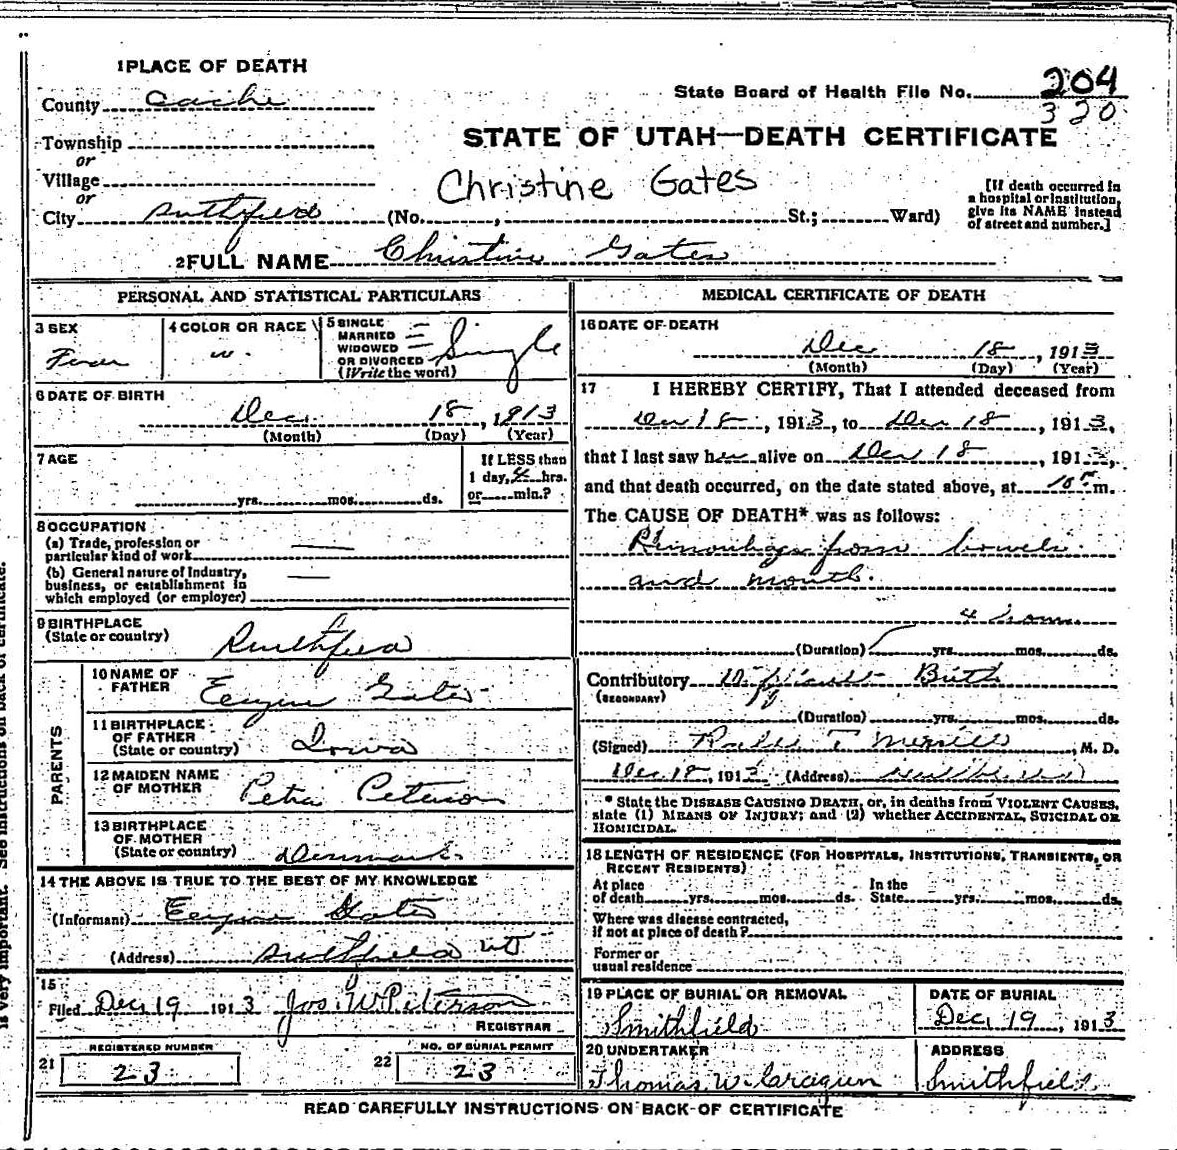 1 PLACE OF DEATH
County Cache
State Board of Health File No. 204
320
Township
or
Village
or
STATE OF UTAH—DEATH CERTIFICATE
Christine Gates
[If death occurred in a hospital or institution, give its NAME instead of street and number.]
City Smithfield (No. , St.; Ward)
2 FULL NAME Christine Gates
PERSONAL AND STATISTICAL PARTICULARS
3 SEX
Fem
4 COLOR OR RACE
w.
5 SINGLE
MARRIED
WIDOWED
OR DIVORCED
(Write the word)
Single
6 DATE OF BIRTH
Dec. 18, 1913
(Month) (Day) (Year)
7 AGE
yrs. mos. ds.
If LESS than
1 day, 4 hrs.
or min.?
8 OCCUPATION
(a) Trade, profession or
particular kind of work
(b) General nature of Industry,
business, or establishment in
which employed (or employer)
9 BIRTHPLACE
(State or country)
Smithfield
PARENTS
10 NAME OF
FATHER
Eugene Gates
11 BIRTHPLACE
OF FATHER
(State or country)
Iowa
12 MAIDEN NAME
OF MOTHER
Petra Peterson
13 BIRTHPLACE
OF MOTHER
(State or country)
Denmark
14 THE ABOVE IS TRUE TO THE BEST OF MY KNOWLEDGE
(Informant) Eugene Gates
(Address) Smithfield Ut
15
Filed Dec, 19 1913 Jos. W Peterson
REGISTRAR
REGISTERED NUMBER
21 23
NO. OF BURIAL PERMIT
22 23
MEDICAL CERTIFICATE OF DEATH
16 DATE OF DEATH
Dec 18, 1913
(Month) (Day) (Year)
17 I HEREBY CERTIFY, That I attended deceased from
Dec 18, 1913, to Dec 18, 1913,
that I last saw her alive on Dec 18, 1913,
and that death occurred, on the date stated above, at 10 m.
The CAUSE OF DEATH* was as follows:
Hemorrhage from bowels
and mouth.
4 hours
(Duration) yrs. mos. ds.
Contributory Difficult Birth
(SECONDARY)
(Duration) yrs. mos. ds.
(Signed) T Merrill, M. D.
Dec 18, 1913 (Address) Smithfield
* State the DISEASE CAUSING DEATH, or, in deaths from VIOLENT CAUSES,
state (1) MEANS OF INJURY; and (2) whether ACCIDENTAL, SUICIDAL OR
HOMICIDAL.
18 LENGTH OF RESIDENCE (FOR HOSPITALS, INSTITUTIONS, TRANSIENTS, OR
RECENT RESIDENTS)
At place
of death yrs. mos. ds.
In the
State yrs. mos. ds.
Where was disease contracted,
if not at place of death?
Former or
usual residence
19 PLACE OF BURIAL OR REMOVAL
Smithfield
DATE OF BURIAL
Dec, 19, 1913
20 UNDERTAKER
Thomas W. Cragun
ADDRESS
Smithfield
READ CAREFULLY INSTRUCTIONS ON BACK OF CERTIFICATE
is very important. See instructions on back of certificate.